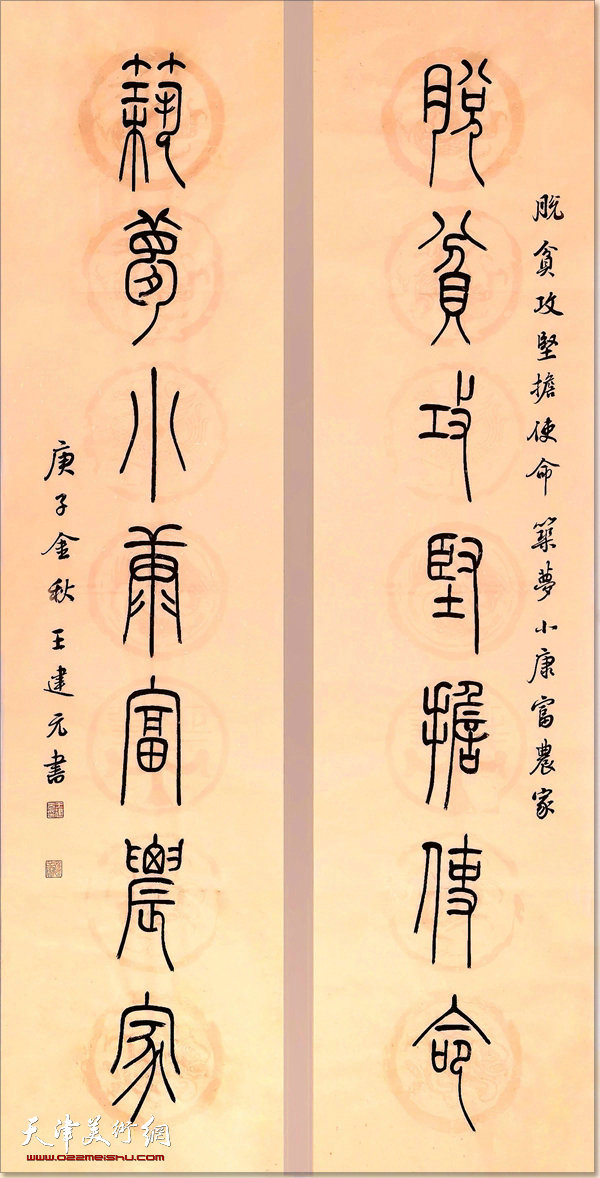 脱貧攻堅擔使命築夢小康富農家
脱貧攻堅擔使命
築夢小康富農家
庚子金秋王建元書
天津美術網
www.022meishu.com